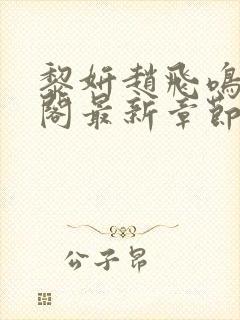 黎妍趙飛鳴
閣最新章節
公子昂